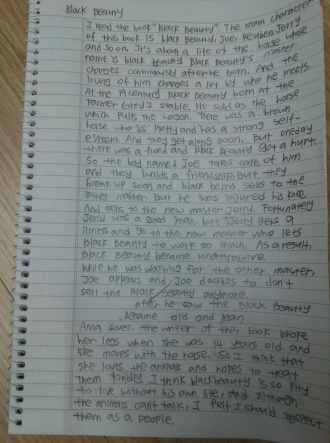 Black Beauty
I read the book "Black Beauty". The main character
of this book is black beauty, Joe, Reuben, Jerry
and so on. It's about a life of the horse whose
name is black beauty. Black Beauty's master
changes continuously after he born. And the
living of him changes a lot by who he meets.
At the Black Beauty born at the
Farmer Grey's stable. He sold as the horse
which pulls the wagon. There was a brown
horse who is hetty and has a strong self-
esteem. And they get along soon, but oneday
there was a fired and Black Beauty got a hurt.
So the boy named Joe takes care of him
and they builds a friendship. But they
break up soon and black being sells to the
other master. But he was injured his knee.
And sells to the new master Jerry. Fortunately
Jerry was a good man. but Jerry gets a
illnes and go to the new master who lets
Black Beauty to work so much. As a result,
Black Beauty became unattractive.
While he was waiting for the other master,
Joe appears and Joe decides to don't
sell the Black Beauty anymore.
after he saw the Black Beauty
became old and lean
Anna swell, the writer of this book broke
her legs when she was 14 years old. and
she moves with the horse. So I think that
she loves the animals and hopes to treat
them kindly. I think blackbeauty is so pity
to live without his own life, and although
the animals can't talk, I felt I should respect
them as a people.